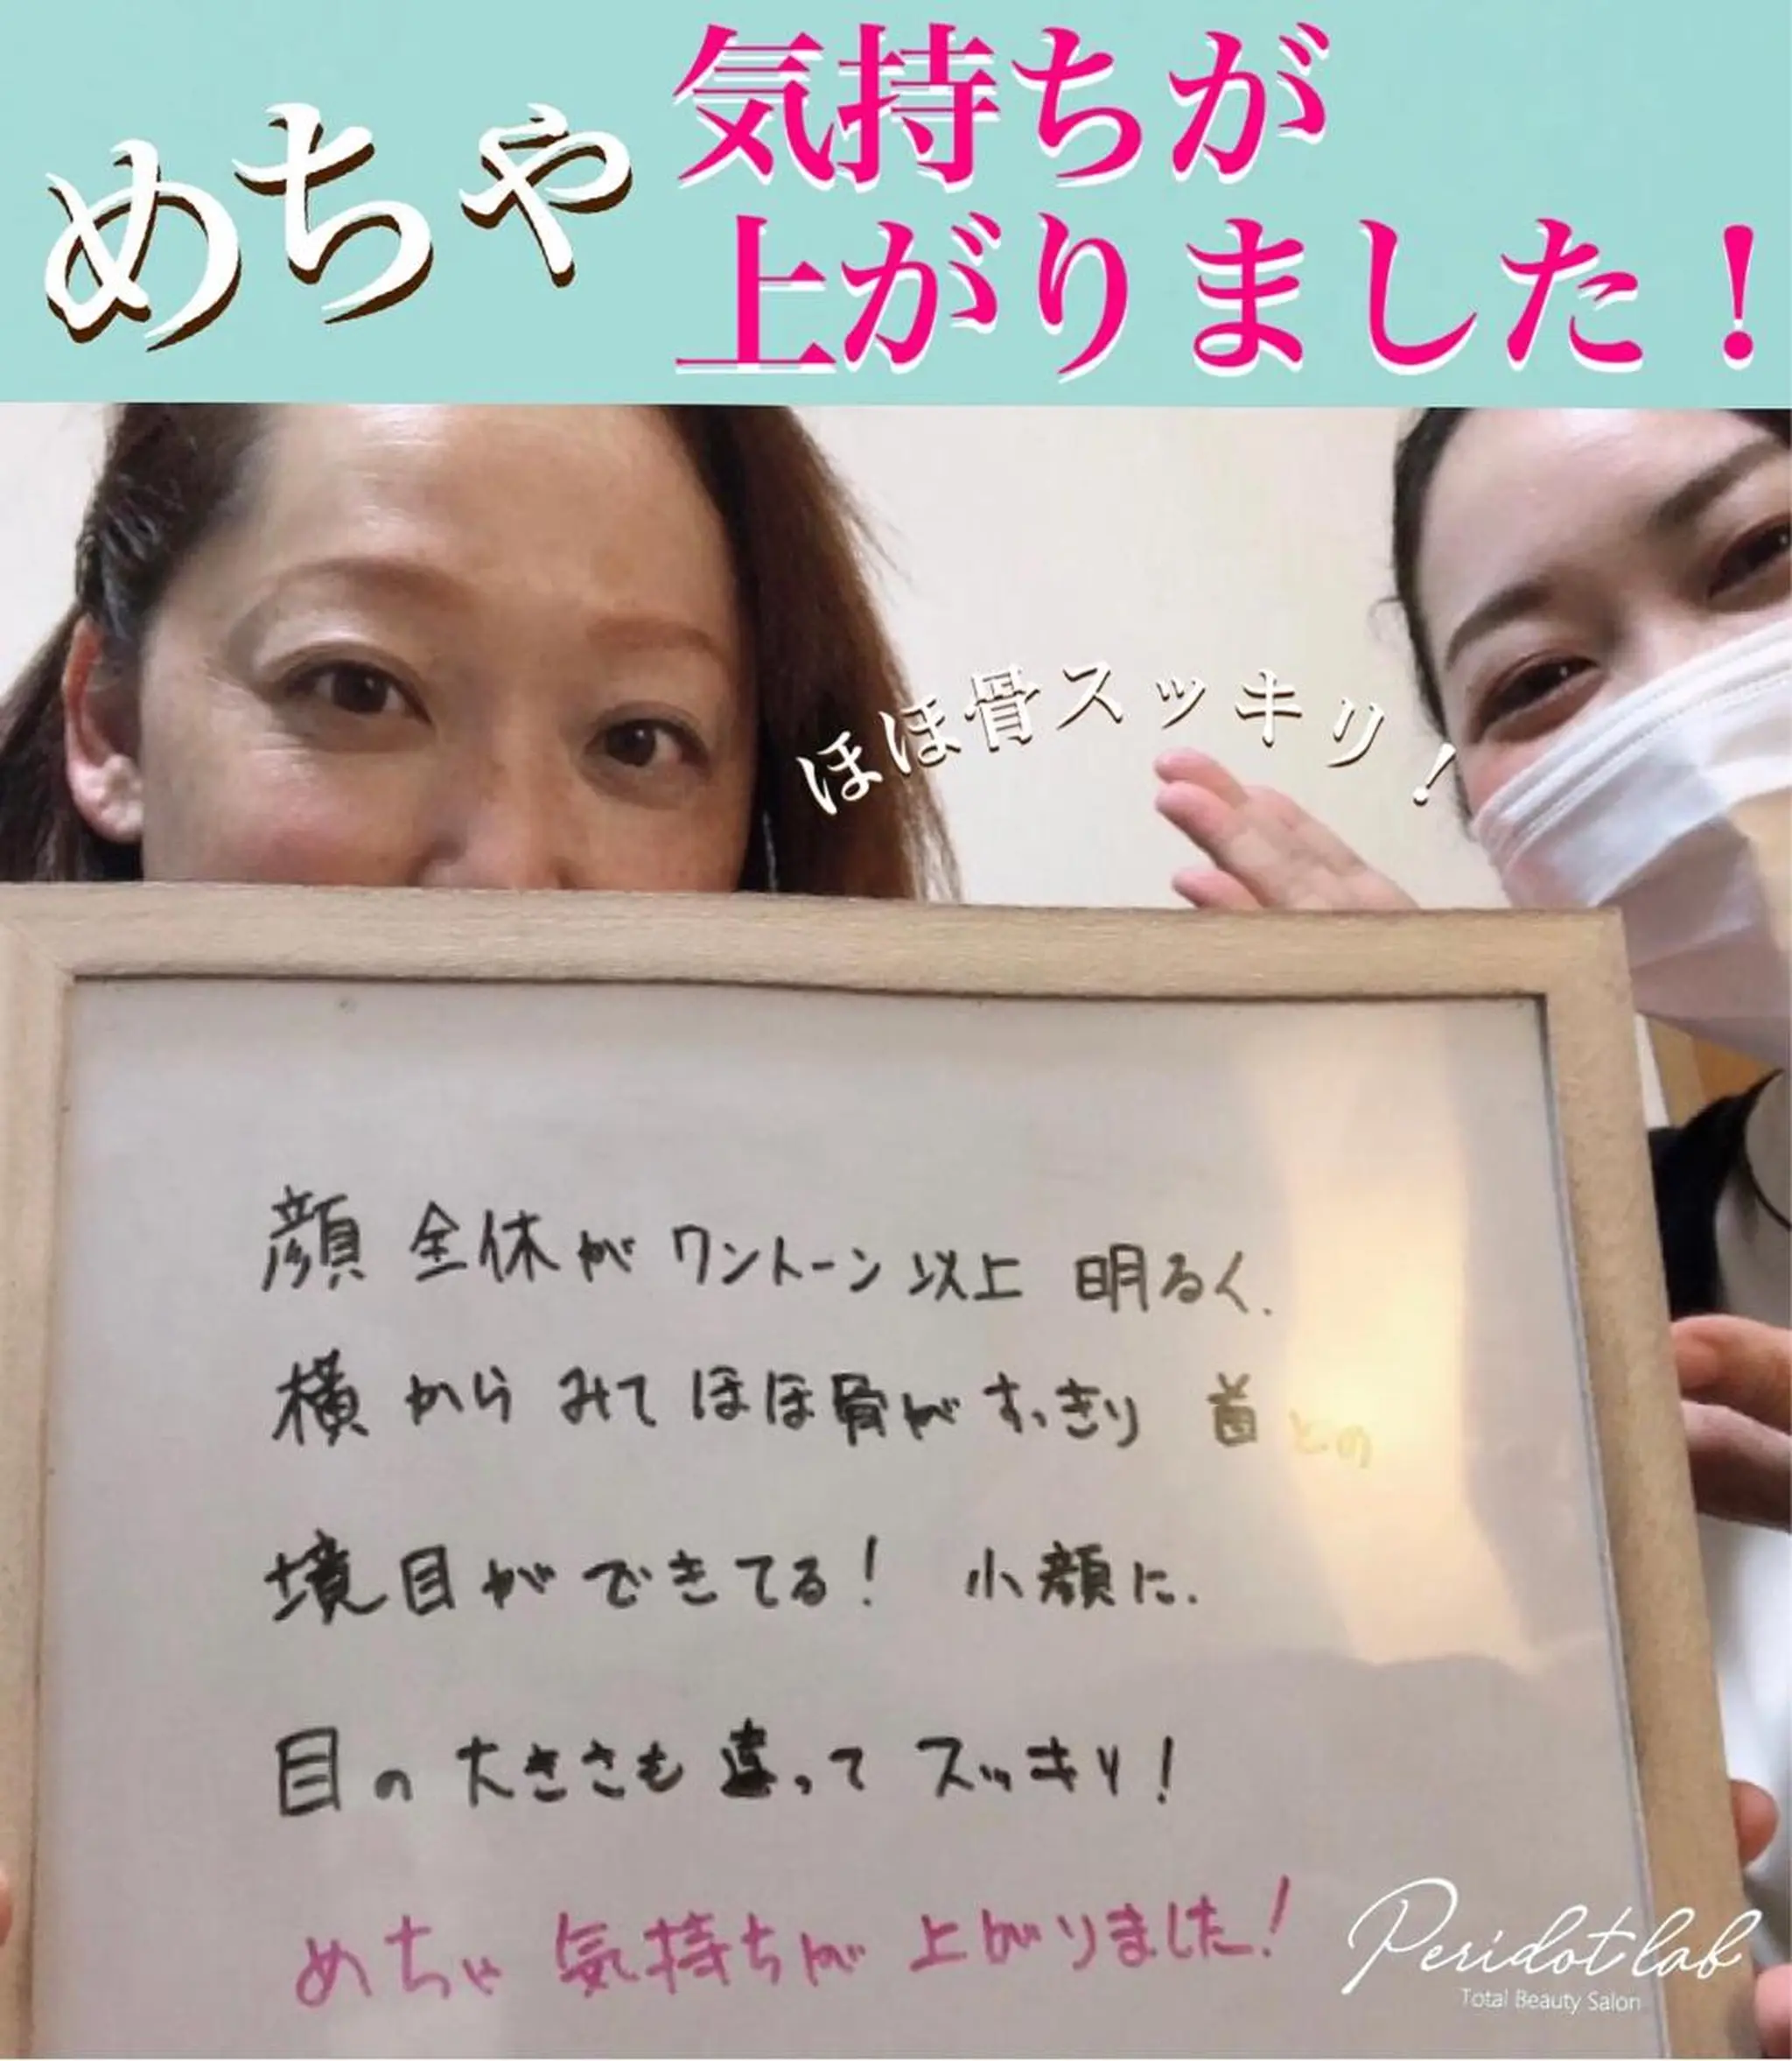 めちゃ
気持ちが
上がりました！
ほほ骨スッキリ！
顔全体がワントーン以上 明るく.
横からみてほほ骨がすっきり 首との
境目ができてる! 小顔に.
目の大きさも違って スッキリ!
めちゃ気持ちが上がりました!
Peridot lab
Total Beauty Salon